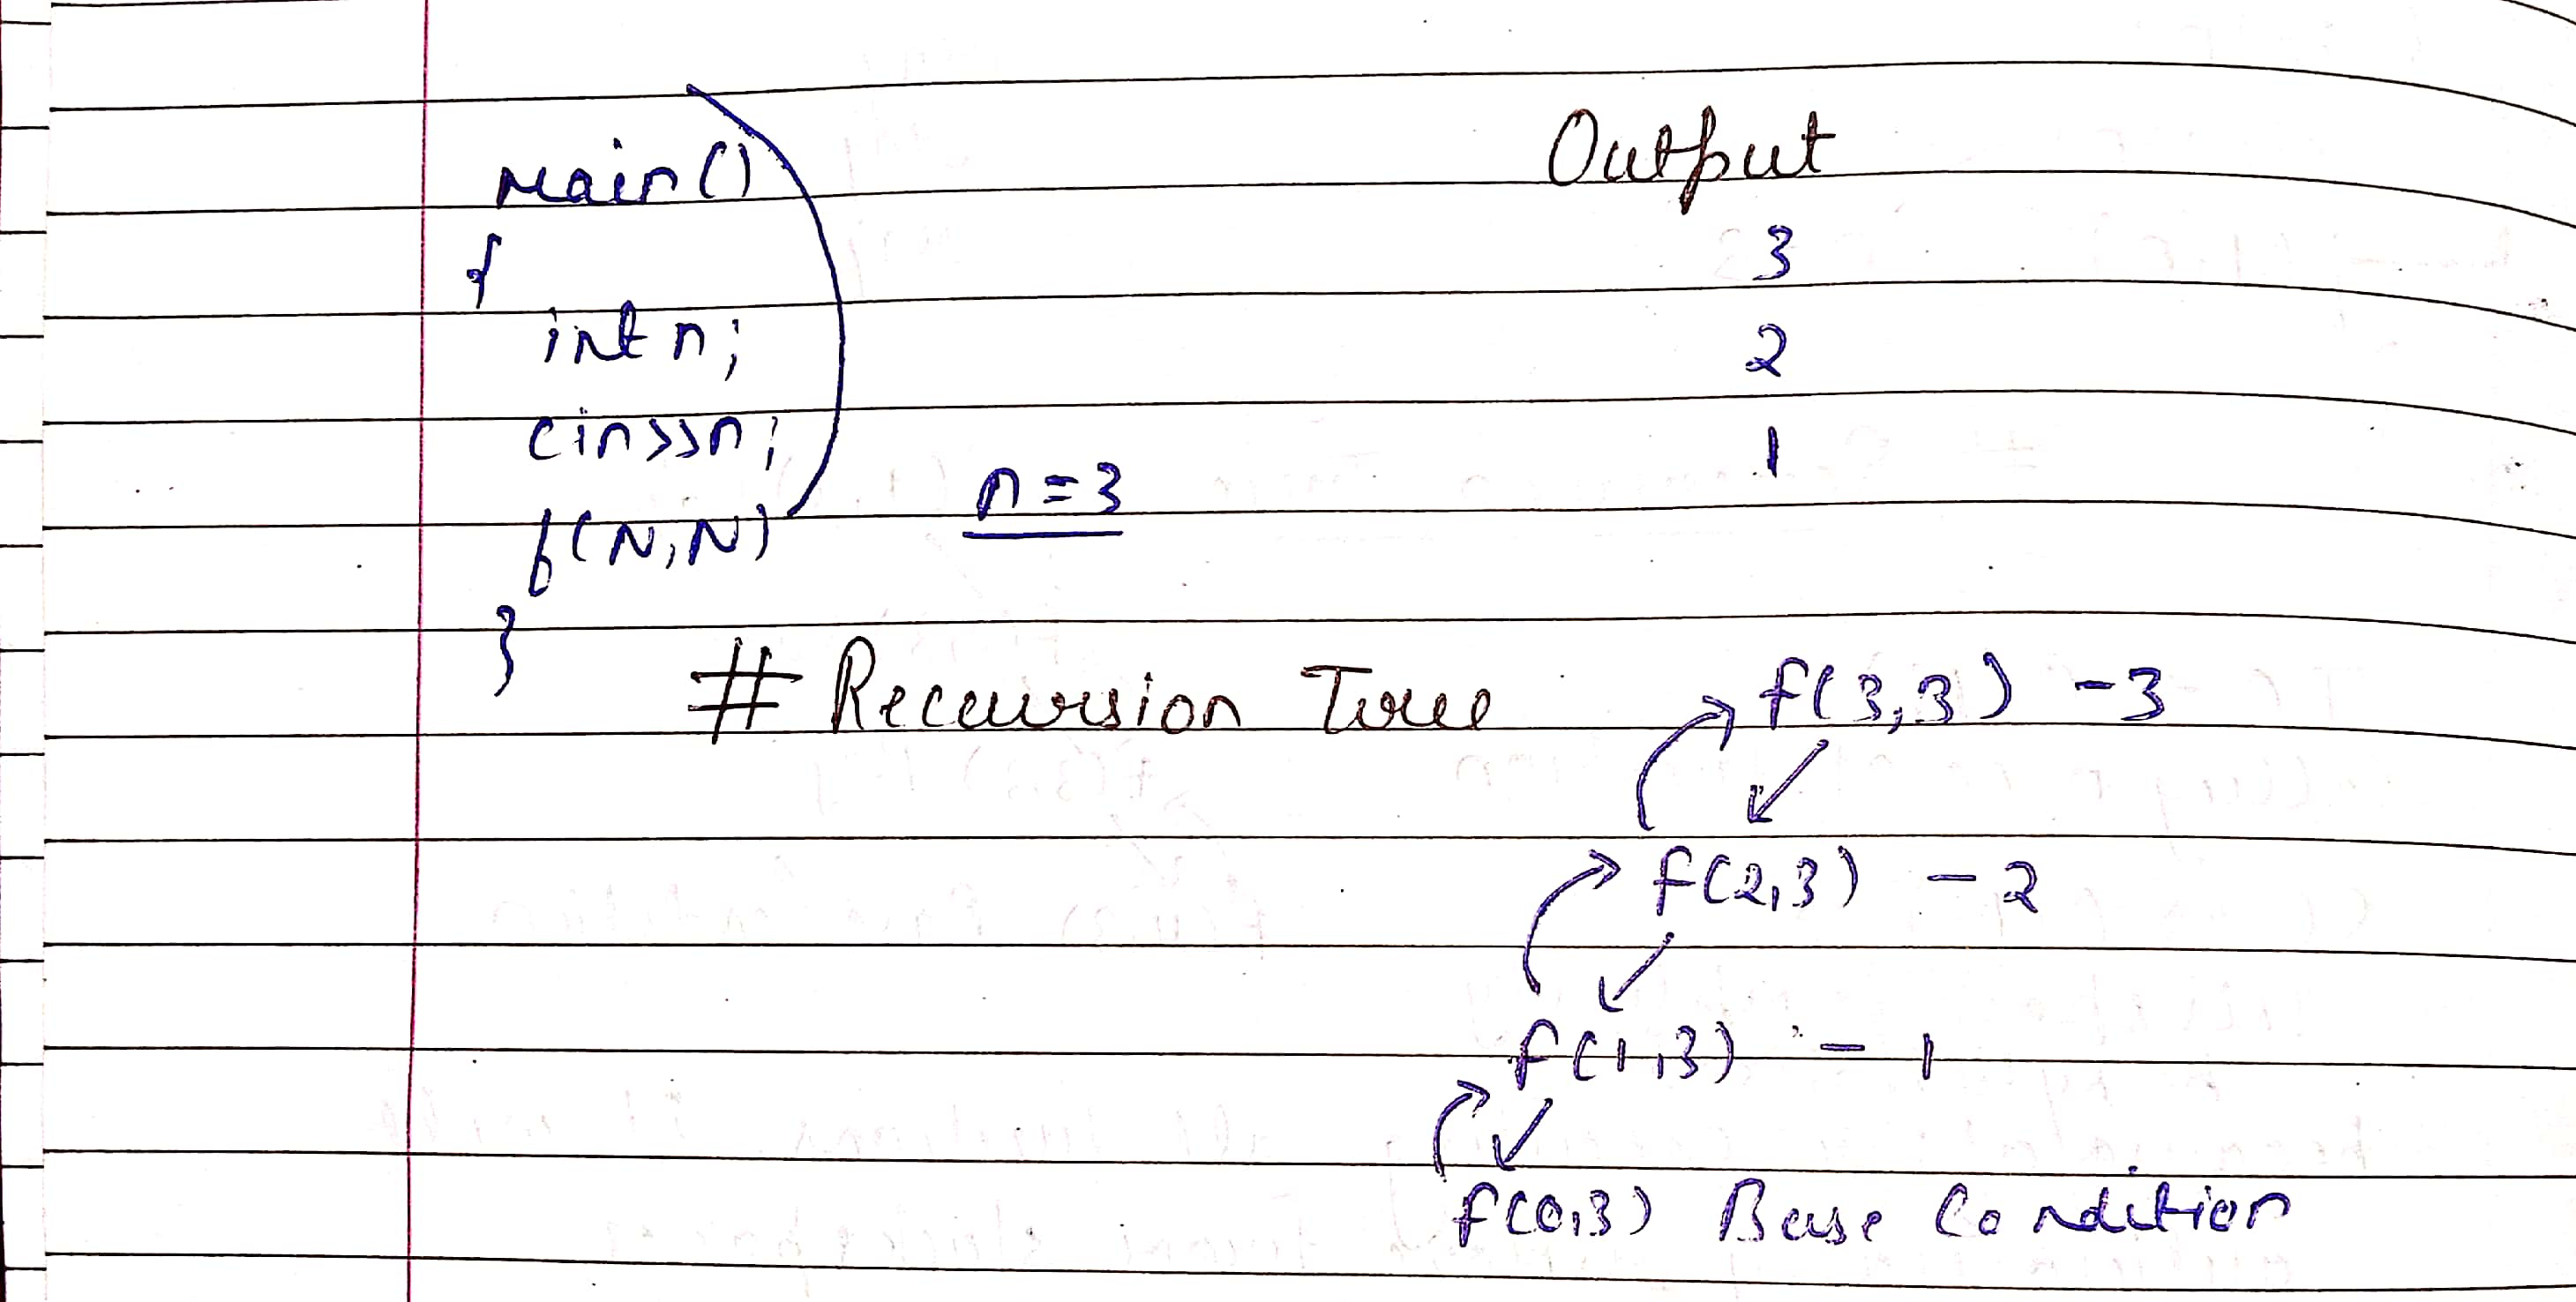 main()
{
int n;
cin>>n;
f(N,N)
}
n=3
Output
3
2
1
# Recursion Tree
f(3,3) - 3
f(2,3) - 2
f(1,3) - 1
f(0,3) Base Condition